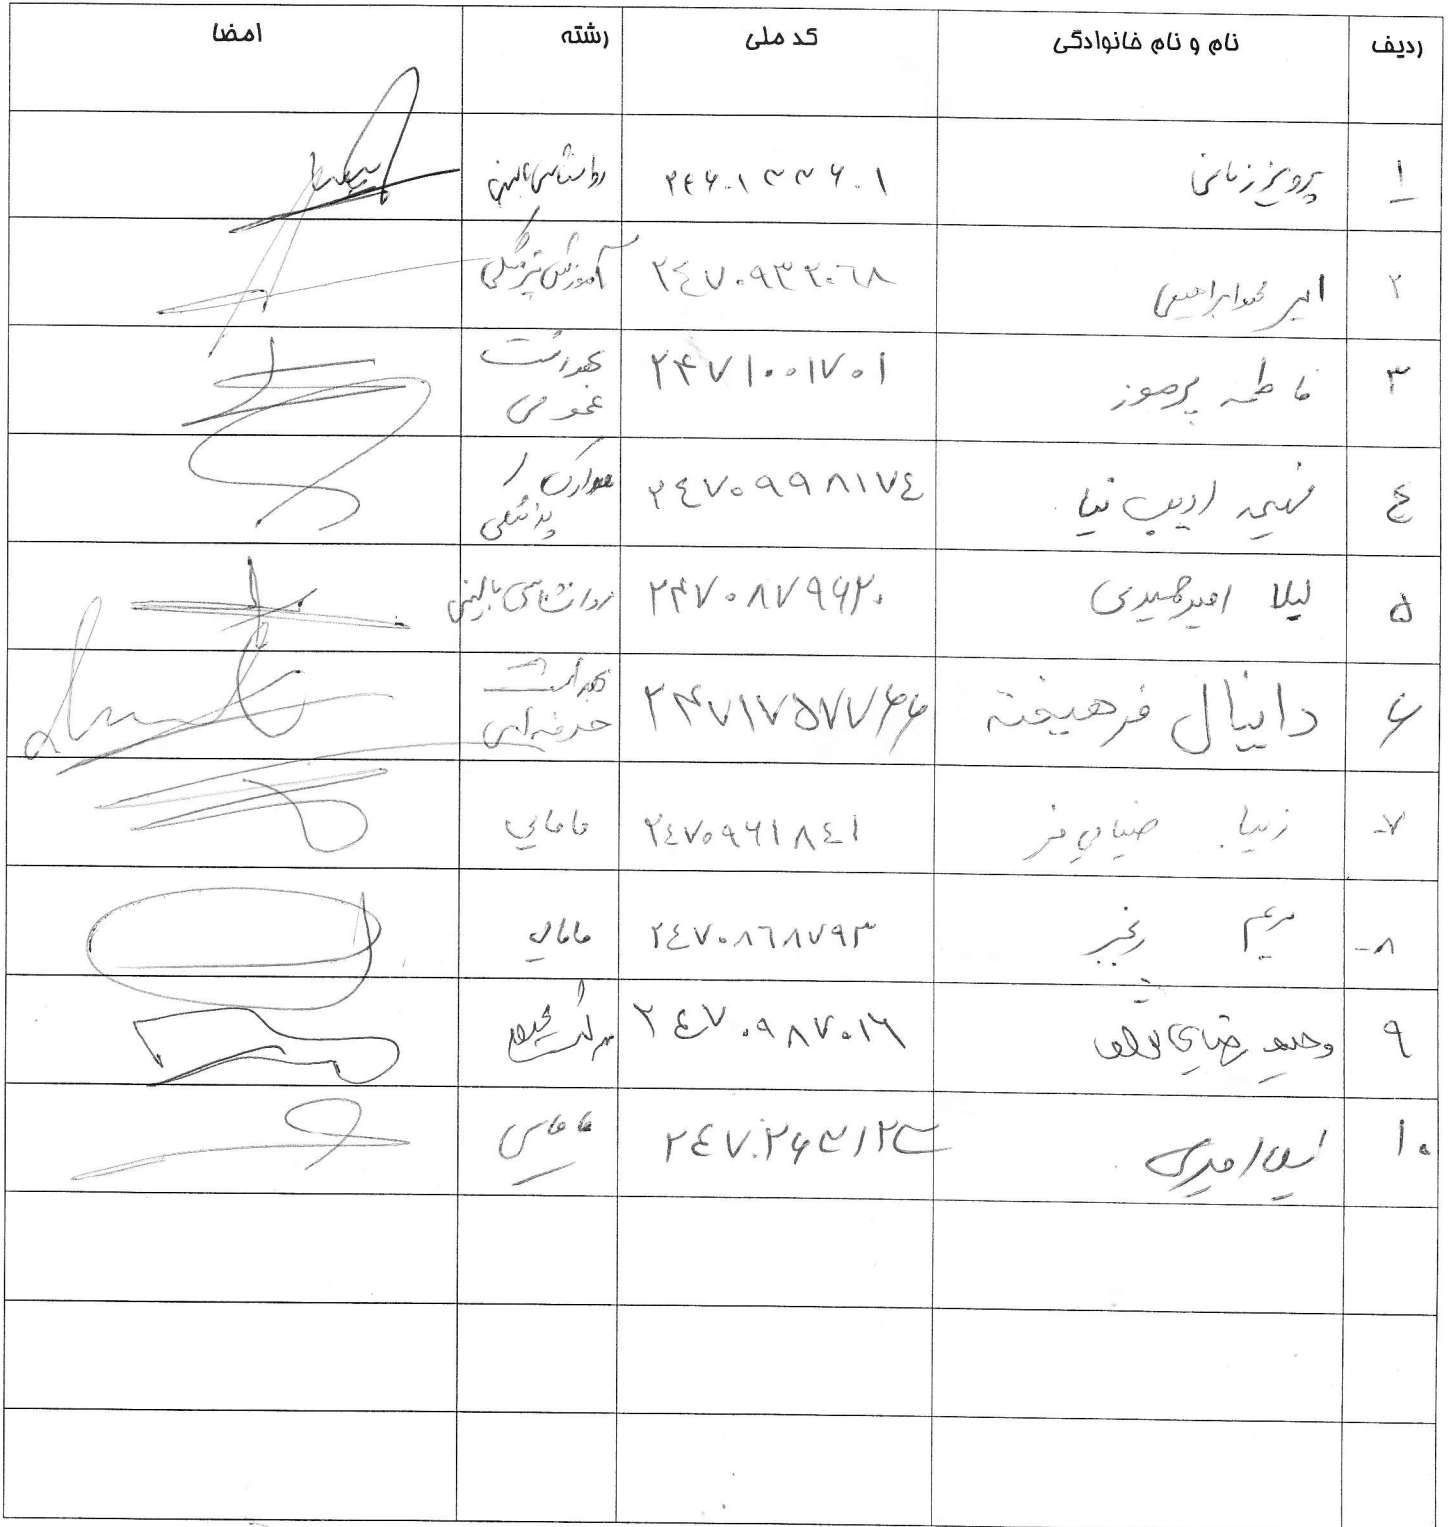 ردیف نام و نام خانوادگی کد ملی رشته امضا
۱ پرویز زمانی ۲۴۶۰۱۳۳۶۰۱ روانشناسی بالینی
۲ امیر ابراهیمی ۲۴۷۰۹۳۲۰۶۸ آموزش پزشکی
۳ فاطمه پرموز ۲۴۷۱۰۰۱۷۰۱ بهداشت
عمومی
۴ فهیمه ادیب نیا ۲۴۷۰۹۹۸۱۷۴ مدارک
پزشکی
۵ لیلا امیرحمیدی ۲۴۷۰۸۷۹۶۲۰ روانشناسی بالینی
۶ دانیال فرهیخته ۲۴۷۱۷۵۷۷۶۶ بهداشت
حرفه ای
۷- زیبا ضیایی فر ۲۴۷۰۹۶۱۸۴۱ مامایی
۸- مریم رنجبر ۲۴۷۰۸۶۸۷۹۳ مامایی
۹ وحید ۲۴۷۰۹۸۷۰۱۶
۱۰ امیری ۲۴۷۰۲۶۳۱۲۳ مامایی